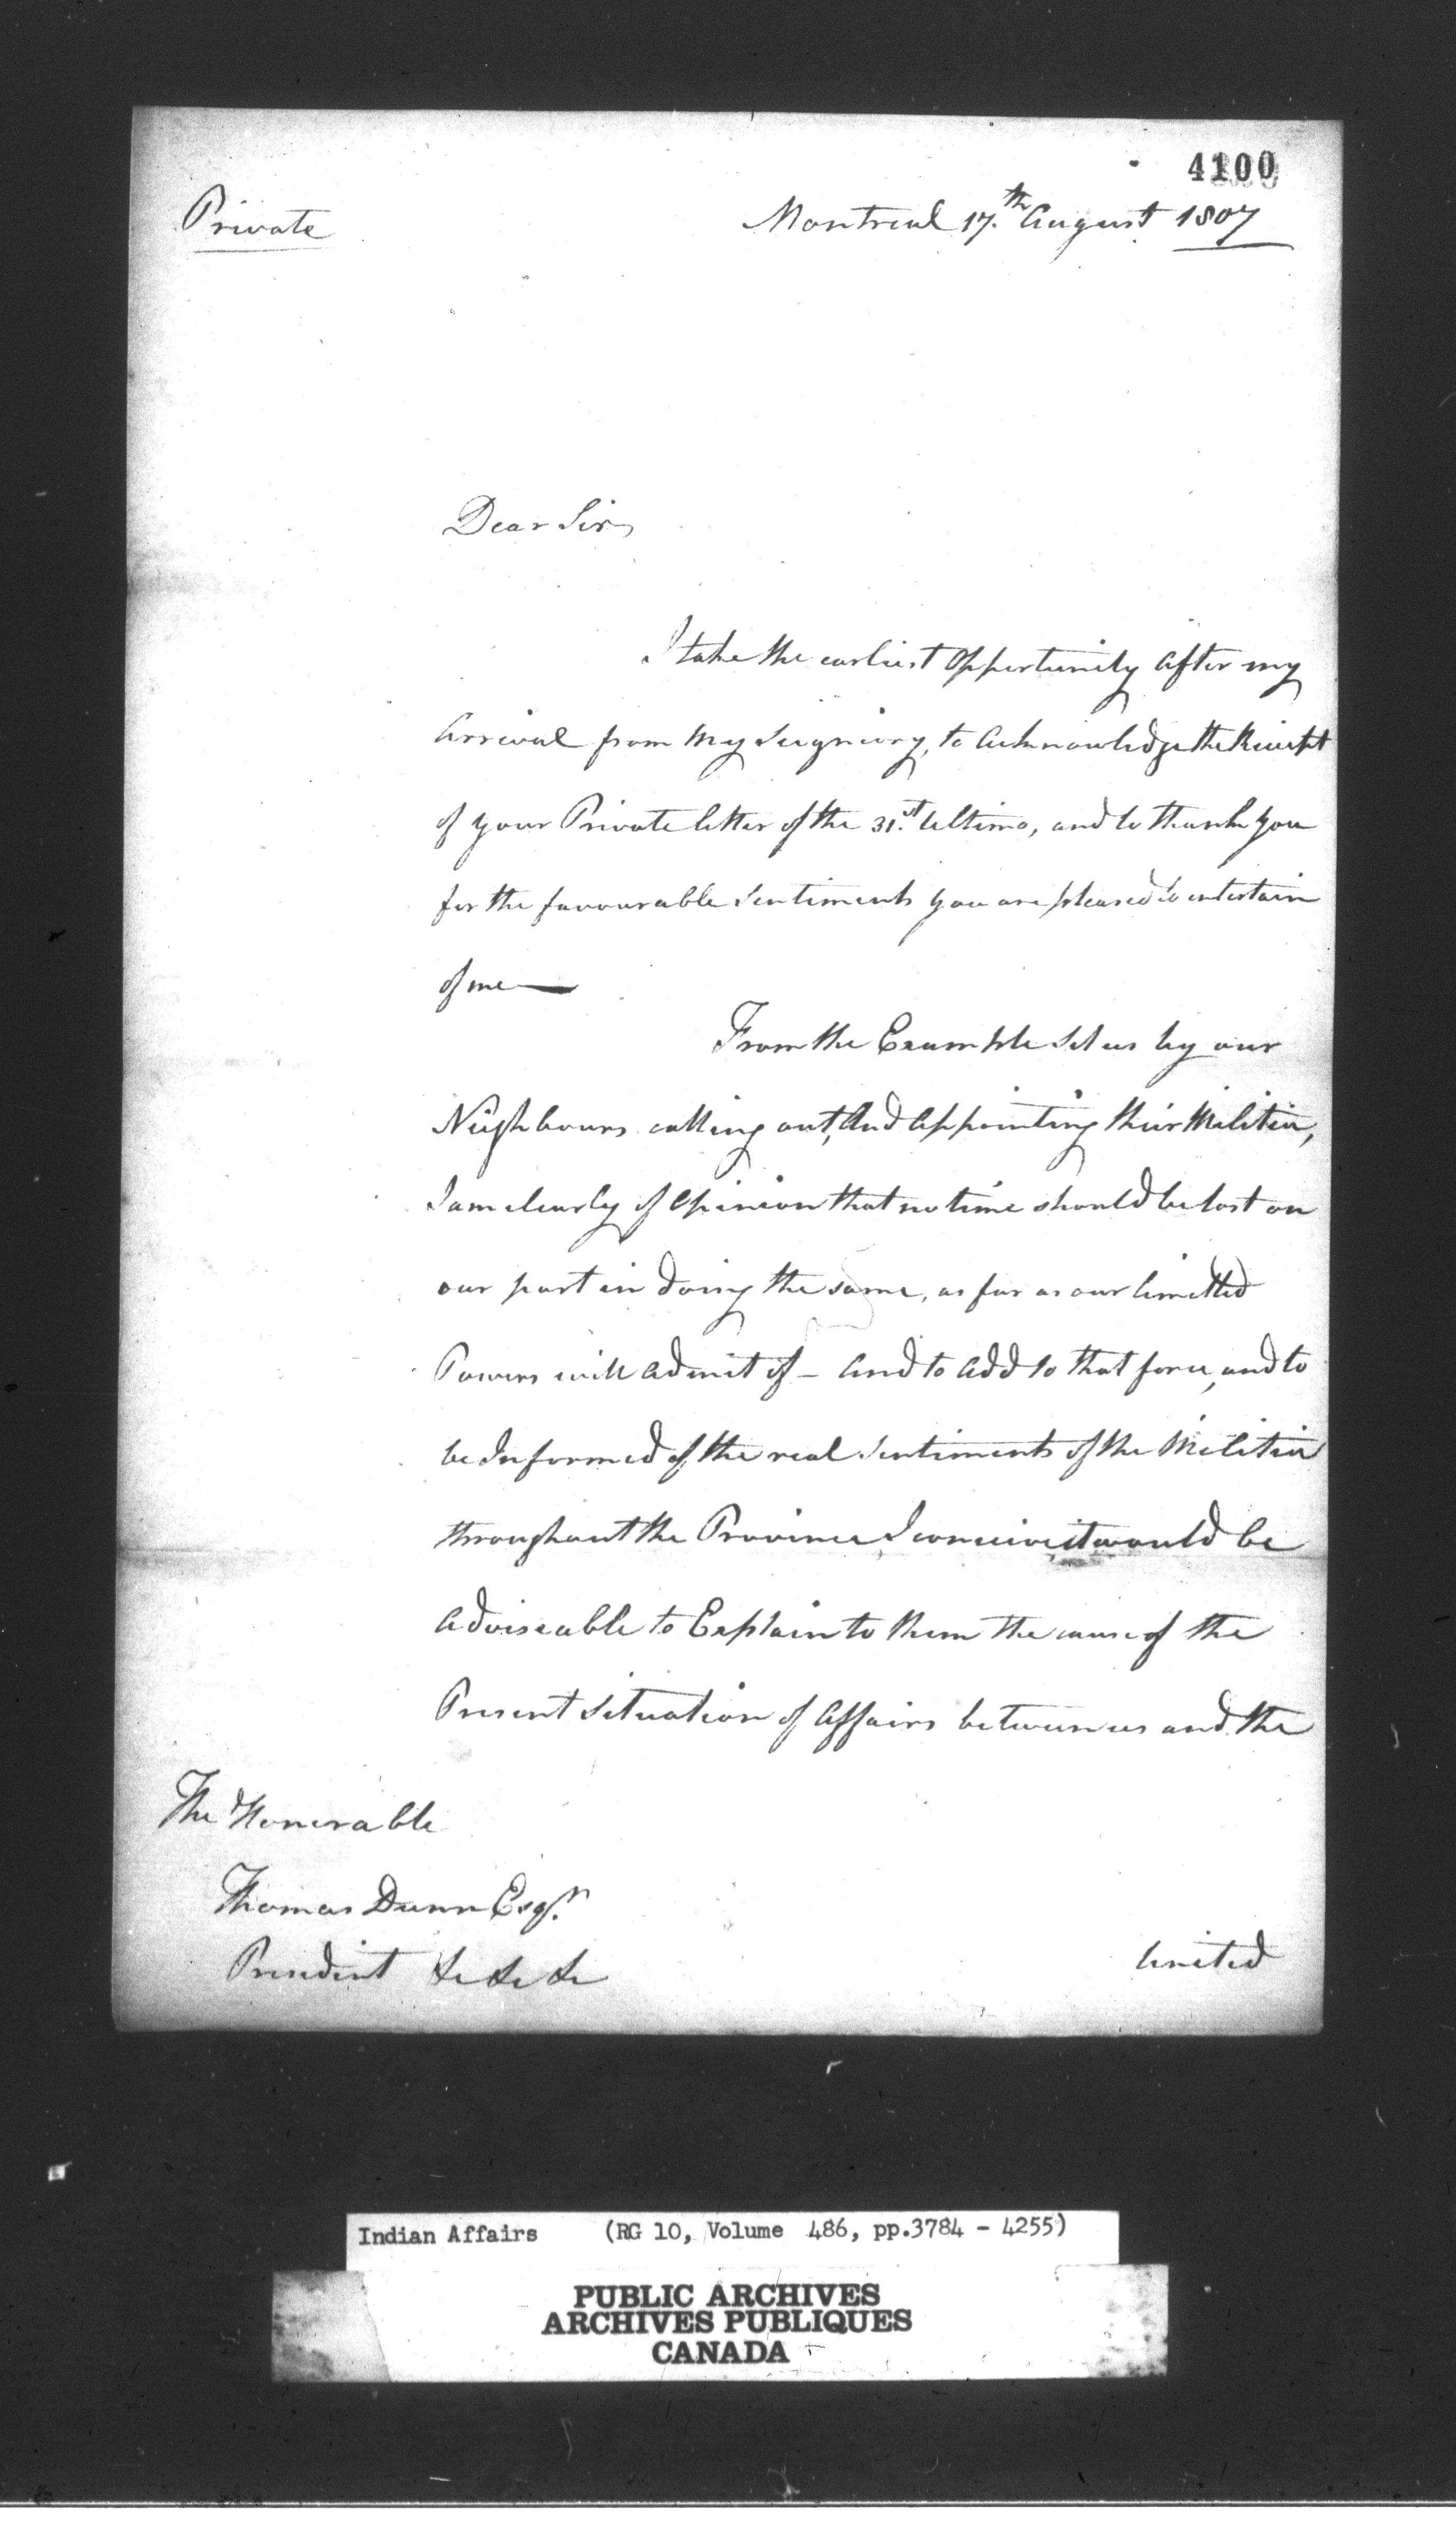 4100
Private
Montreal 17.th August 1807
Dear Sir,
I take the earliest Oppertunity after my
Arrival from my Seigniory, to Acknowledge the Reciept
of your Private letter of the 31.st Ultimo, and to thank you
for the favourable Sentiments you are pleased to entertain
of me—
From the Example Set us by our
Neighbours calling out, And Appointing their Militia,
I am clearly of Opinion that no time should be lost on
our part in doing the same, as far as our limitted
Powers will admit of – And to add to that force, and to
be Informed of the real Sentiments of the Militia
throughout the Province I conceive it would be
adviseable to Explain to them the cause of the
Present Situation of Affairs between us and the
The Honorable
Thomas Dunn Esqr.
President &c &c &c
United
Indian Affairs (RG 10, Volume 486, pp.3784 - 4255)
PUBLIC ARCHIVES
ARCHIVES PUBLIQUES
CANADA